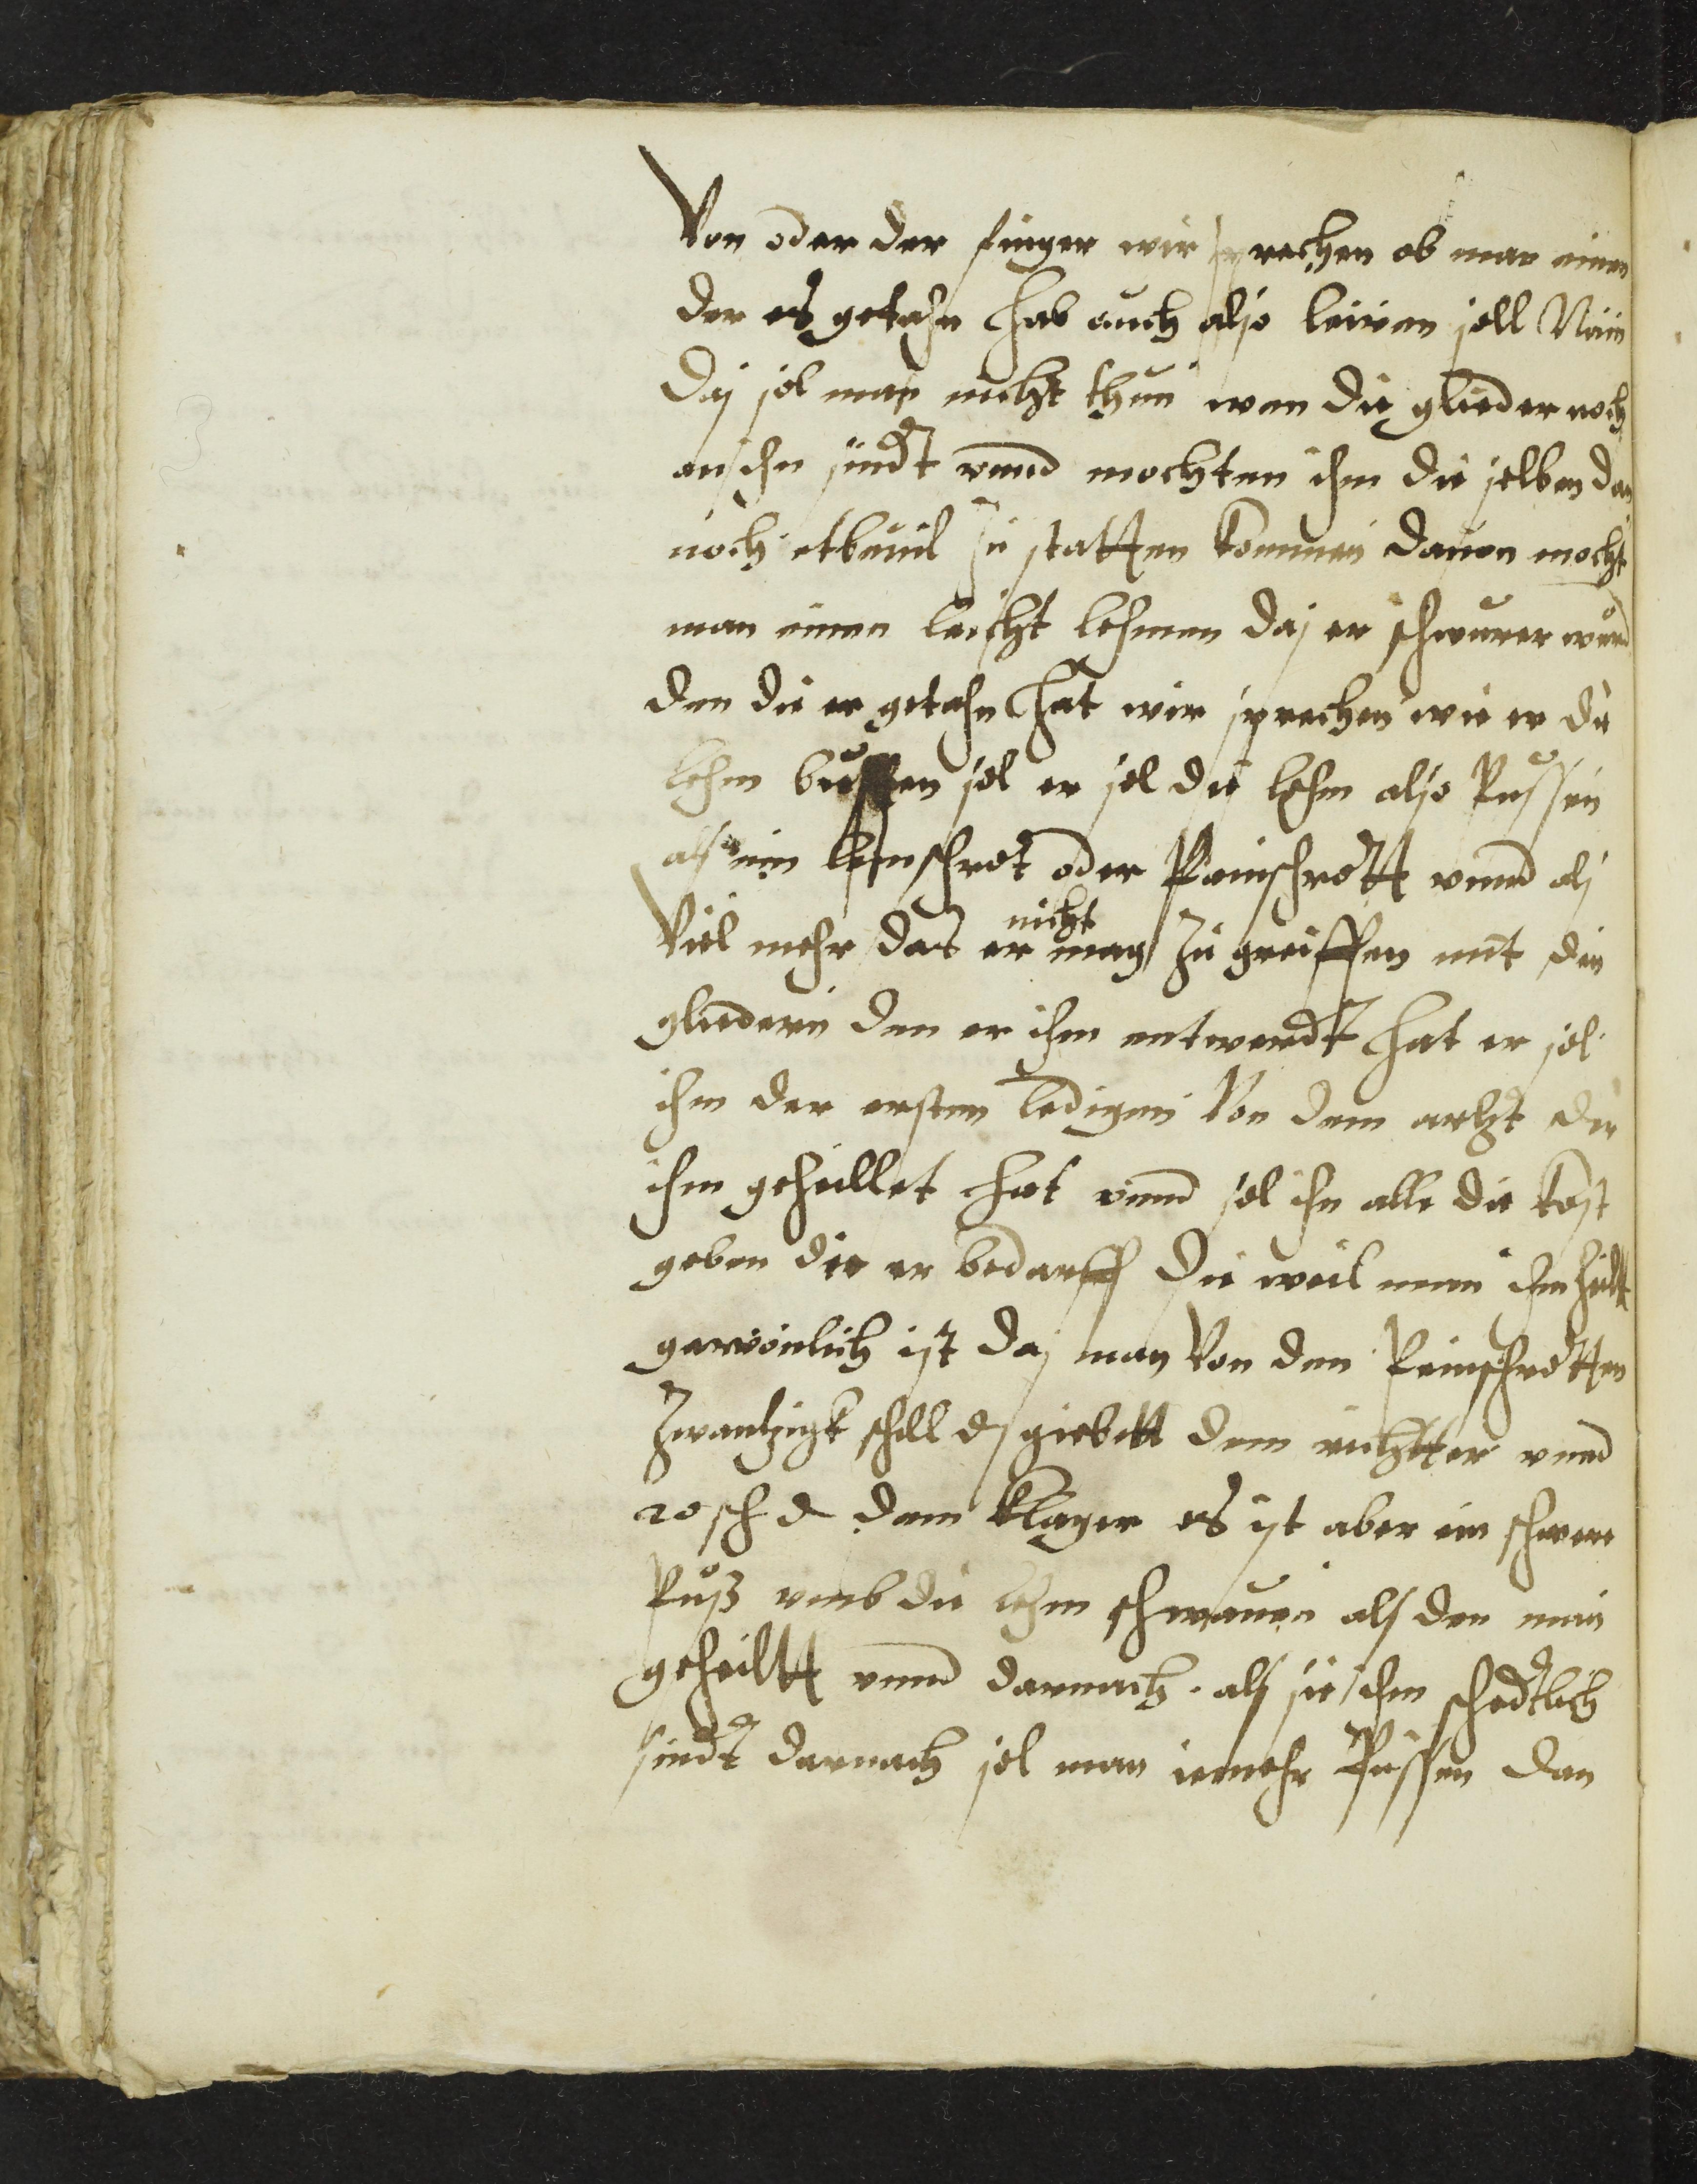 Von oder der finger wir sprechen ob man einen
der es getahn hab auch also leiren soll Nain
Das sol man nicht thun wan die glieder noch
an ihn sindt vnnd mochten ihm die selben dan
noch etbeuil zu statten kommen dauon mocht
man einen leicht lehmen das er schwerer wurd
den die er getahn hat wir sprechen wie er die
lehm bussen sol er sol die lehm also Pussen
als ein lehnschrot oder Painschrott vnnd als
Viel mehr das er nicht mag zu greiffen mit den
gliedern den er ihm entwerdt hat er sol
ihm der ersten ledigen Von dem artzt der
ihm geheillet hat vnnd sol ihn alle die kost
geben die er bedarff Die weil man ihn heilt
gewonlich ist das man Von den Peinschrotten
Zwantzigk schill ds giebett dem richtter vnnd
20 sch d dem klager es ist aber ein schwere
Puß vmb die lehm schwauen als den man
geheiltt vnnd darnach als sie ihm schedtlich
sindt darnach sol man iemehr Pussen dan